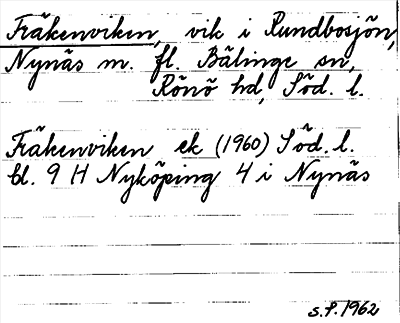 Fräkenviken, vik i Rundbosjön,
Nynäs m. fl. Bälinge sn,
Rönö hd, Söd. l.
Fräkenviken ek (1960) Söd. l.
bl. 9 H Nyköping 4 i Nynäs
s.f. 1962